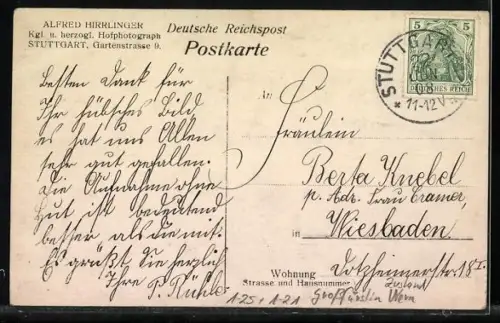 ALFRED HIRRLINGER
Kgl. u. herzogl. Hofphotograph
STUTTGART, Gartenstrasse 9.
Deutsche Reichspost
Postkarte
5 5
DEUTSCHES REICH
STUTTGART
08
* 11-12 V.
Besten Dank für
Ihr hübsches Bild
es hat uns Allen
sehr gut gefallen.
Die Aufnahme ohne
Hut ist bedeutend
besser als die mit.
Es grüßt Sie herzlich
Ihre P. Rühle.
An
Fräulein
Berta Knebel
p. Adr. Frau Cramer,
in Wiesbaden
Wohnung
Strasse und Hausnummer
Dotzheimerstr. 18 I.
1.25 1.21 Großfürstin Wera